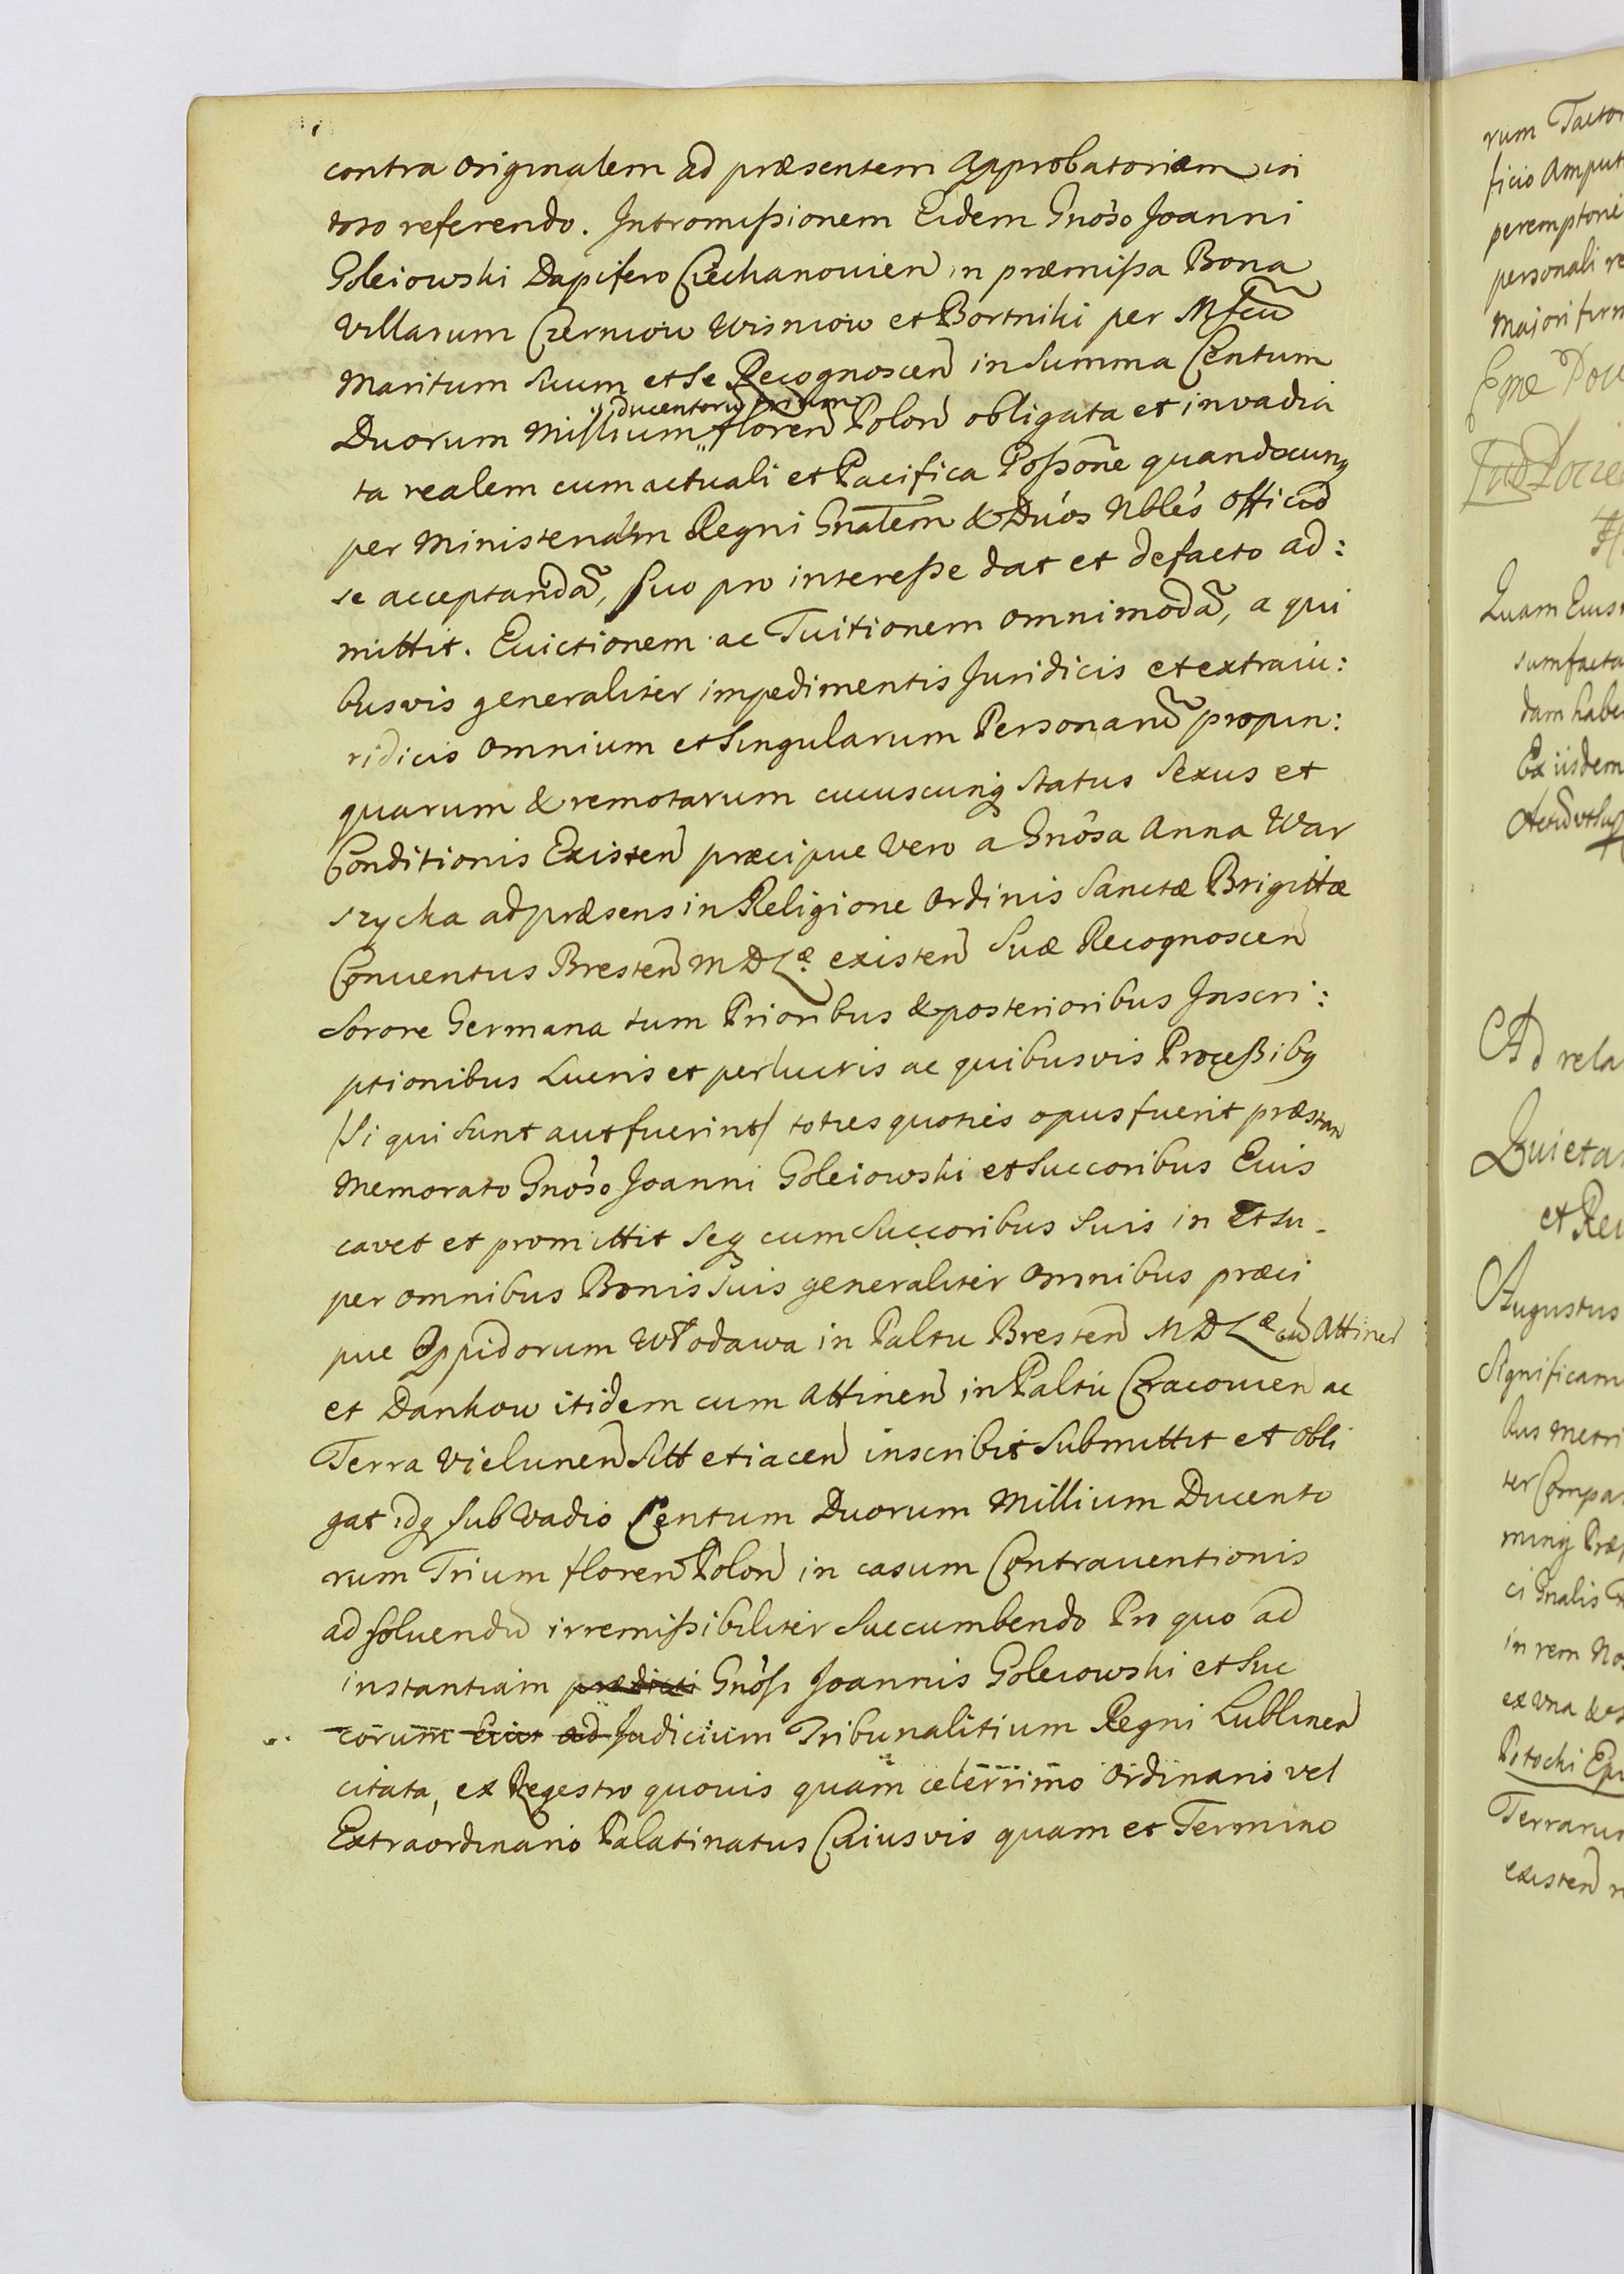 contra originalem ad præsentem Approbatoriam in
toto referendo. Intromißionem Eidem Gnoso Joanni
Goleiowski Dapifero Ciechanouien in præmißa Bona
Villarum Czerniow Wisniow et Bortniki per Mfcu
Maritum Suum et Se Recognoscen in Summa Centum
ducentoru trium
Duorum Millium floren Polon obligata et invadia
ta realem cum actuali et Pacifica Poßone quandocunq
per Ministerialem Regni Gnalem & Duos Nbles Officio
se acceptanda, Suo pro intereße dat et defacto ad:
mittit. Euictionem ac Tuitionem omnimoda, a qui
busvis generaliter impedimentis Juridicis et extraiu:
ridicis omnium et Singularum Personaru propin:
quarum & remotarum cuiuscunq Status Sexus et
Conditionis Existen præcipue Vero a Gnosa Anna War
szycka ad præsens in Religione Ordinis Sanctæ Brigittæ
Conuentus Bresten M D Læ existen Suæ Recognoscen
Sorore Germana tum Prioribus & posterioribus Inscri:
ptionibus Lucris et perlucris ac quibusvis Proceßibq
/Si qui Sunt aut fuerint/ toties quoties opus fuerit præstan
Memorato Gnoso Joanni Goleiowski et Succoribus Eius
cavet et promittit Seq cum Succoribus Suis in Et Su-
per omnibus Bonis Suis generaliter Omnibus præci
pue Oppidorum Włodawa in Paltu Bresten M D Læ cu Attinen
et Dankow itidem cum Attinen in Paltu Cracouien ac
Terra Vielunen Sitt et iacen inscribit Submittit et Obli
gat idq sub Vadio Centum Duorum Millium Ducento
rum Trium floren Polon in casum Contrauentionis
ad soluendu irremißibiliter Succumbendo Pro quo ad
instantiam prædicti Gnosi Joannis Goleiowski et Suc
corum Eius ad Judicium Tribunalitium Regni Lublinen
citata, ex Regestro quouis quam celerrimo Ordinario vel
Extraordinario Palatinatus Cuiusvis quam et Termino
rum
ficio Amput
personali re
Majori firm
Quam Eius
dam habe
Ex iisdem
Ad rela
Quieta
et Re
Augustus
Significam
bus Metri
ter Compa
minq Præ
ci Gnalis
in rem No
ex Vna &
Potocki Ep
Terraru
existen